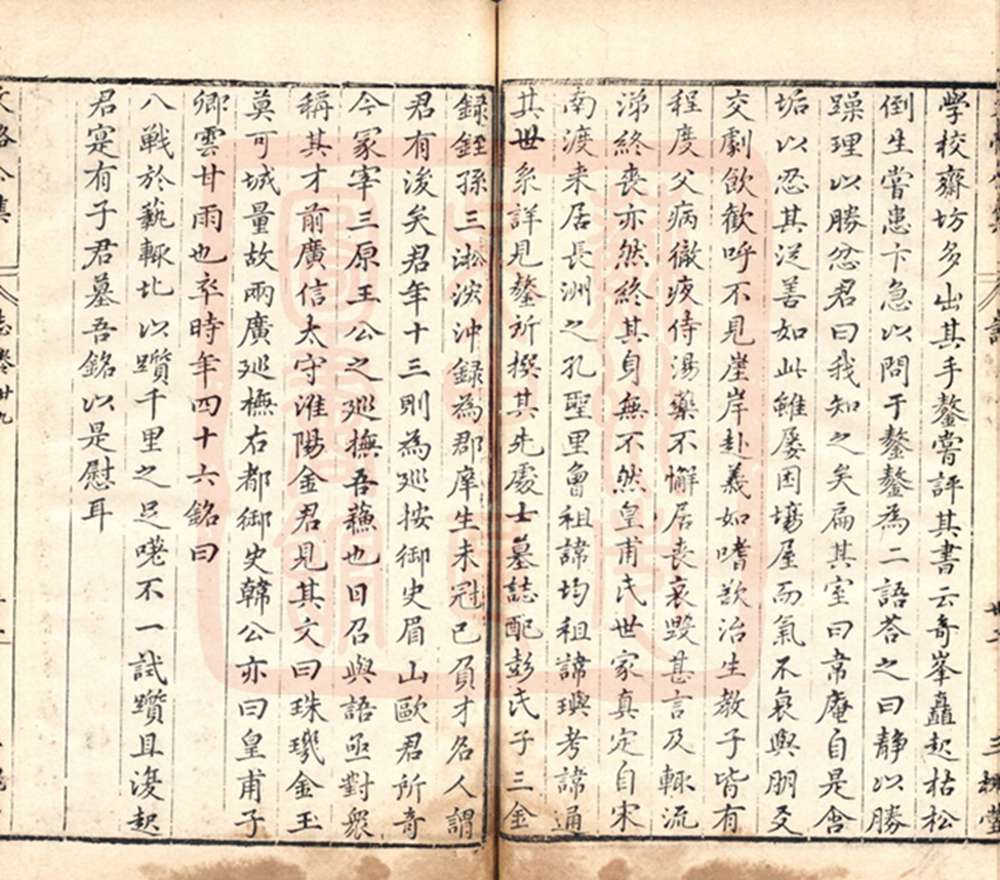 學校齋坊多出其手鏊嘗評其書云奇峯矗起枯松
倒生嘗患卞急以問于鏊鏊為二語荅之曰靜以勝
躁理以勝忿君曰我知之矣扁其室曰常庵自是含
垢以忍其從善如此雖屡困塲屋而氣不衰與朋友
交劇飲歡呼不見崖岸赴義如嗜欲治生教子皆有
程度父病徹夜侍湯藥不懈居丧哀毀甚言及輒流
涕終丧亦然終其身無不然皇甫氏世家真定自宋
南渡来居長洲之孔聖里曾祖諱均祖諱璵考諱通
其世系詳見鏊所撰其先處士墓誌配彭氏子三金
録銍孫三淞浹沖録為郡庠生未冠已負才名人謂
君有後矣君年十三則為廵按御史眉山歐君所奇
今冢宰三原王公之廵撫吾蘓也日召與語亟對衆
稱其才前廣信太守淮陽金君見其文曰珠璣金玉
莫可域量故兩廣廵橅右都御史韓公亦曰皇甫子
卿雲甘雨也卒時年四十六銘曰
八戰於藝輒北以躓千里之足嗟不一試躓且復起
君寔有子君墓吾銘以是慰耳